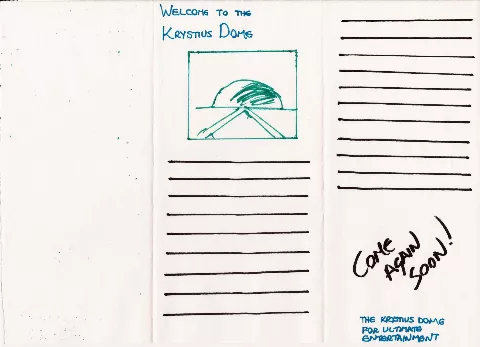 WELCOME TO THE
KRYSTIUS DOME
COME
AGAIN
SOON!
THE KRYSTIUS DOME
FOR ULTIMATE
ENTERTAINMENT